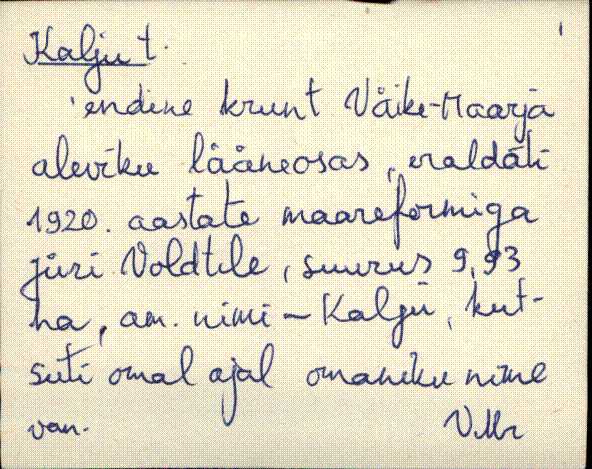 Kalju t.
1
endine krunt Väike-Maarja
aleviku lääneosas, eraldati
1920. aastate maareformiga
Jüri Voldtile, suurus 9,93
ha, am. nimi – Kalju, kut-
suti omal ajal omaniku nime
van. V.Mr